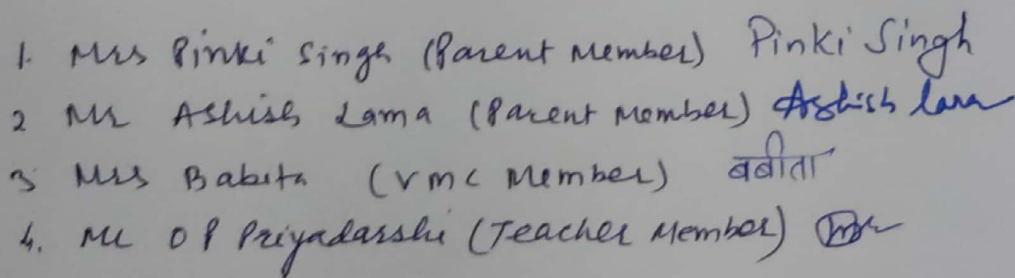 1. Mrs Pinki Singh (Parent Member) Pinki Singh
2 Mr Ashish Lama (Parent Member) Ashish Lama
3 Mrs Babita (VMC Member) बबीता
4. Mr O P Priyadarshi (Teacher Member)